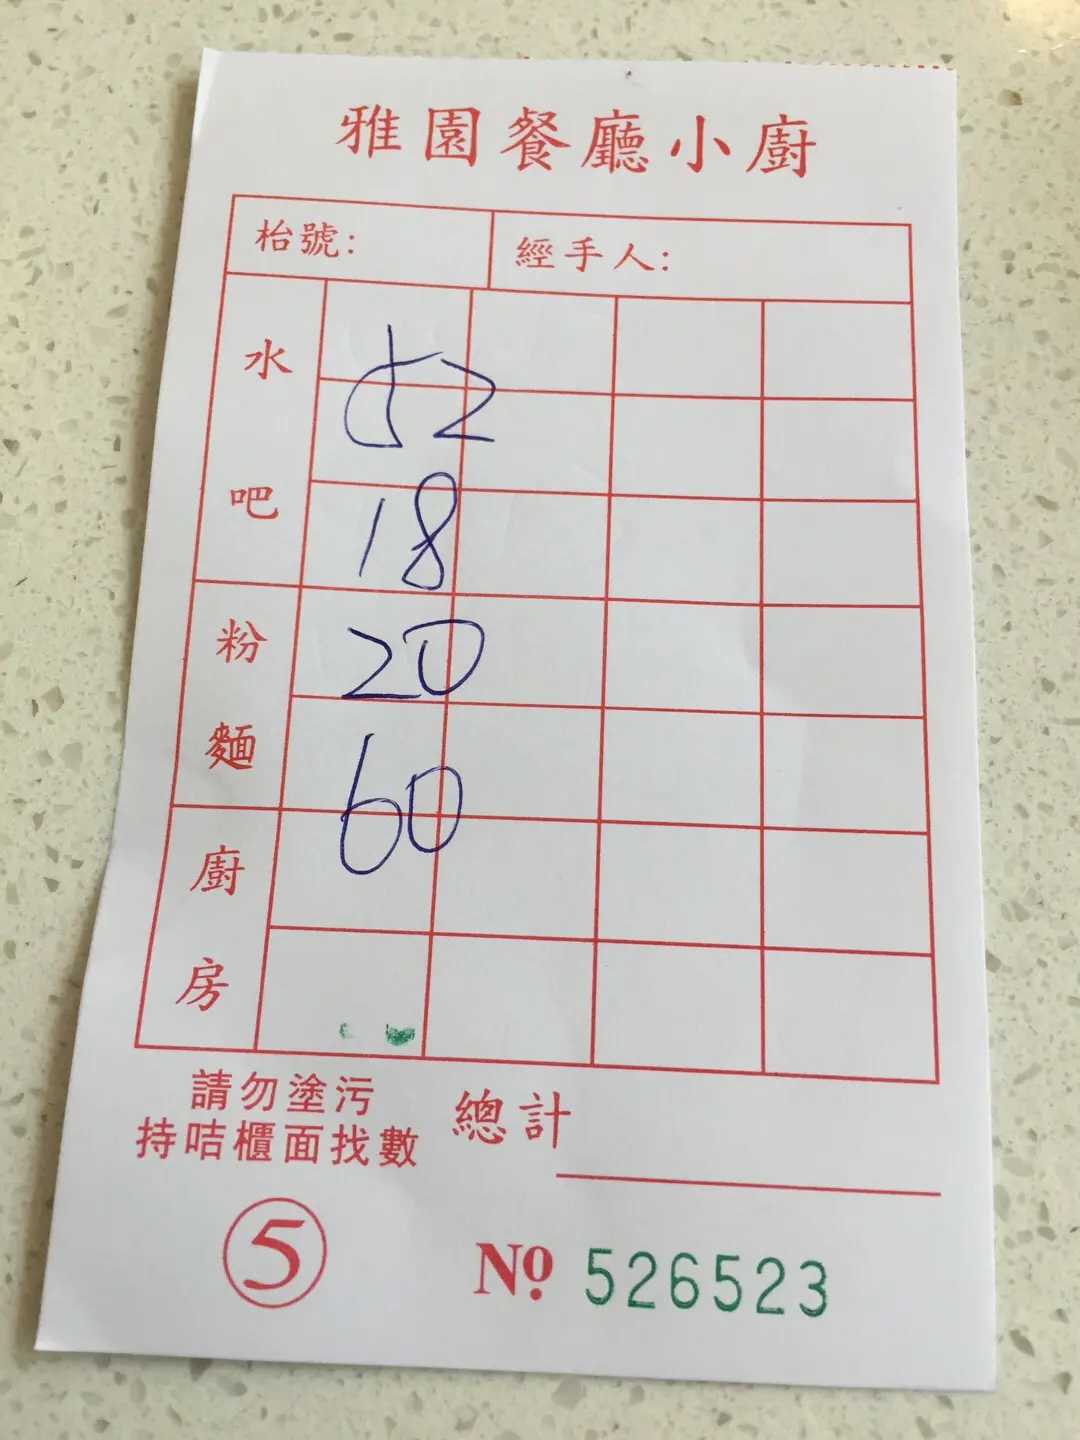 雅園餐廳小廚
枱號: 經手人:
水吧
粉麵
廚房
52
18
20
60
請勿塗污
持咭櫃面找數
總計
5
Nº 526523